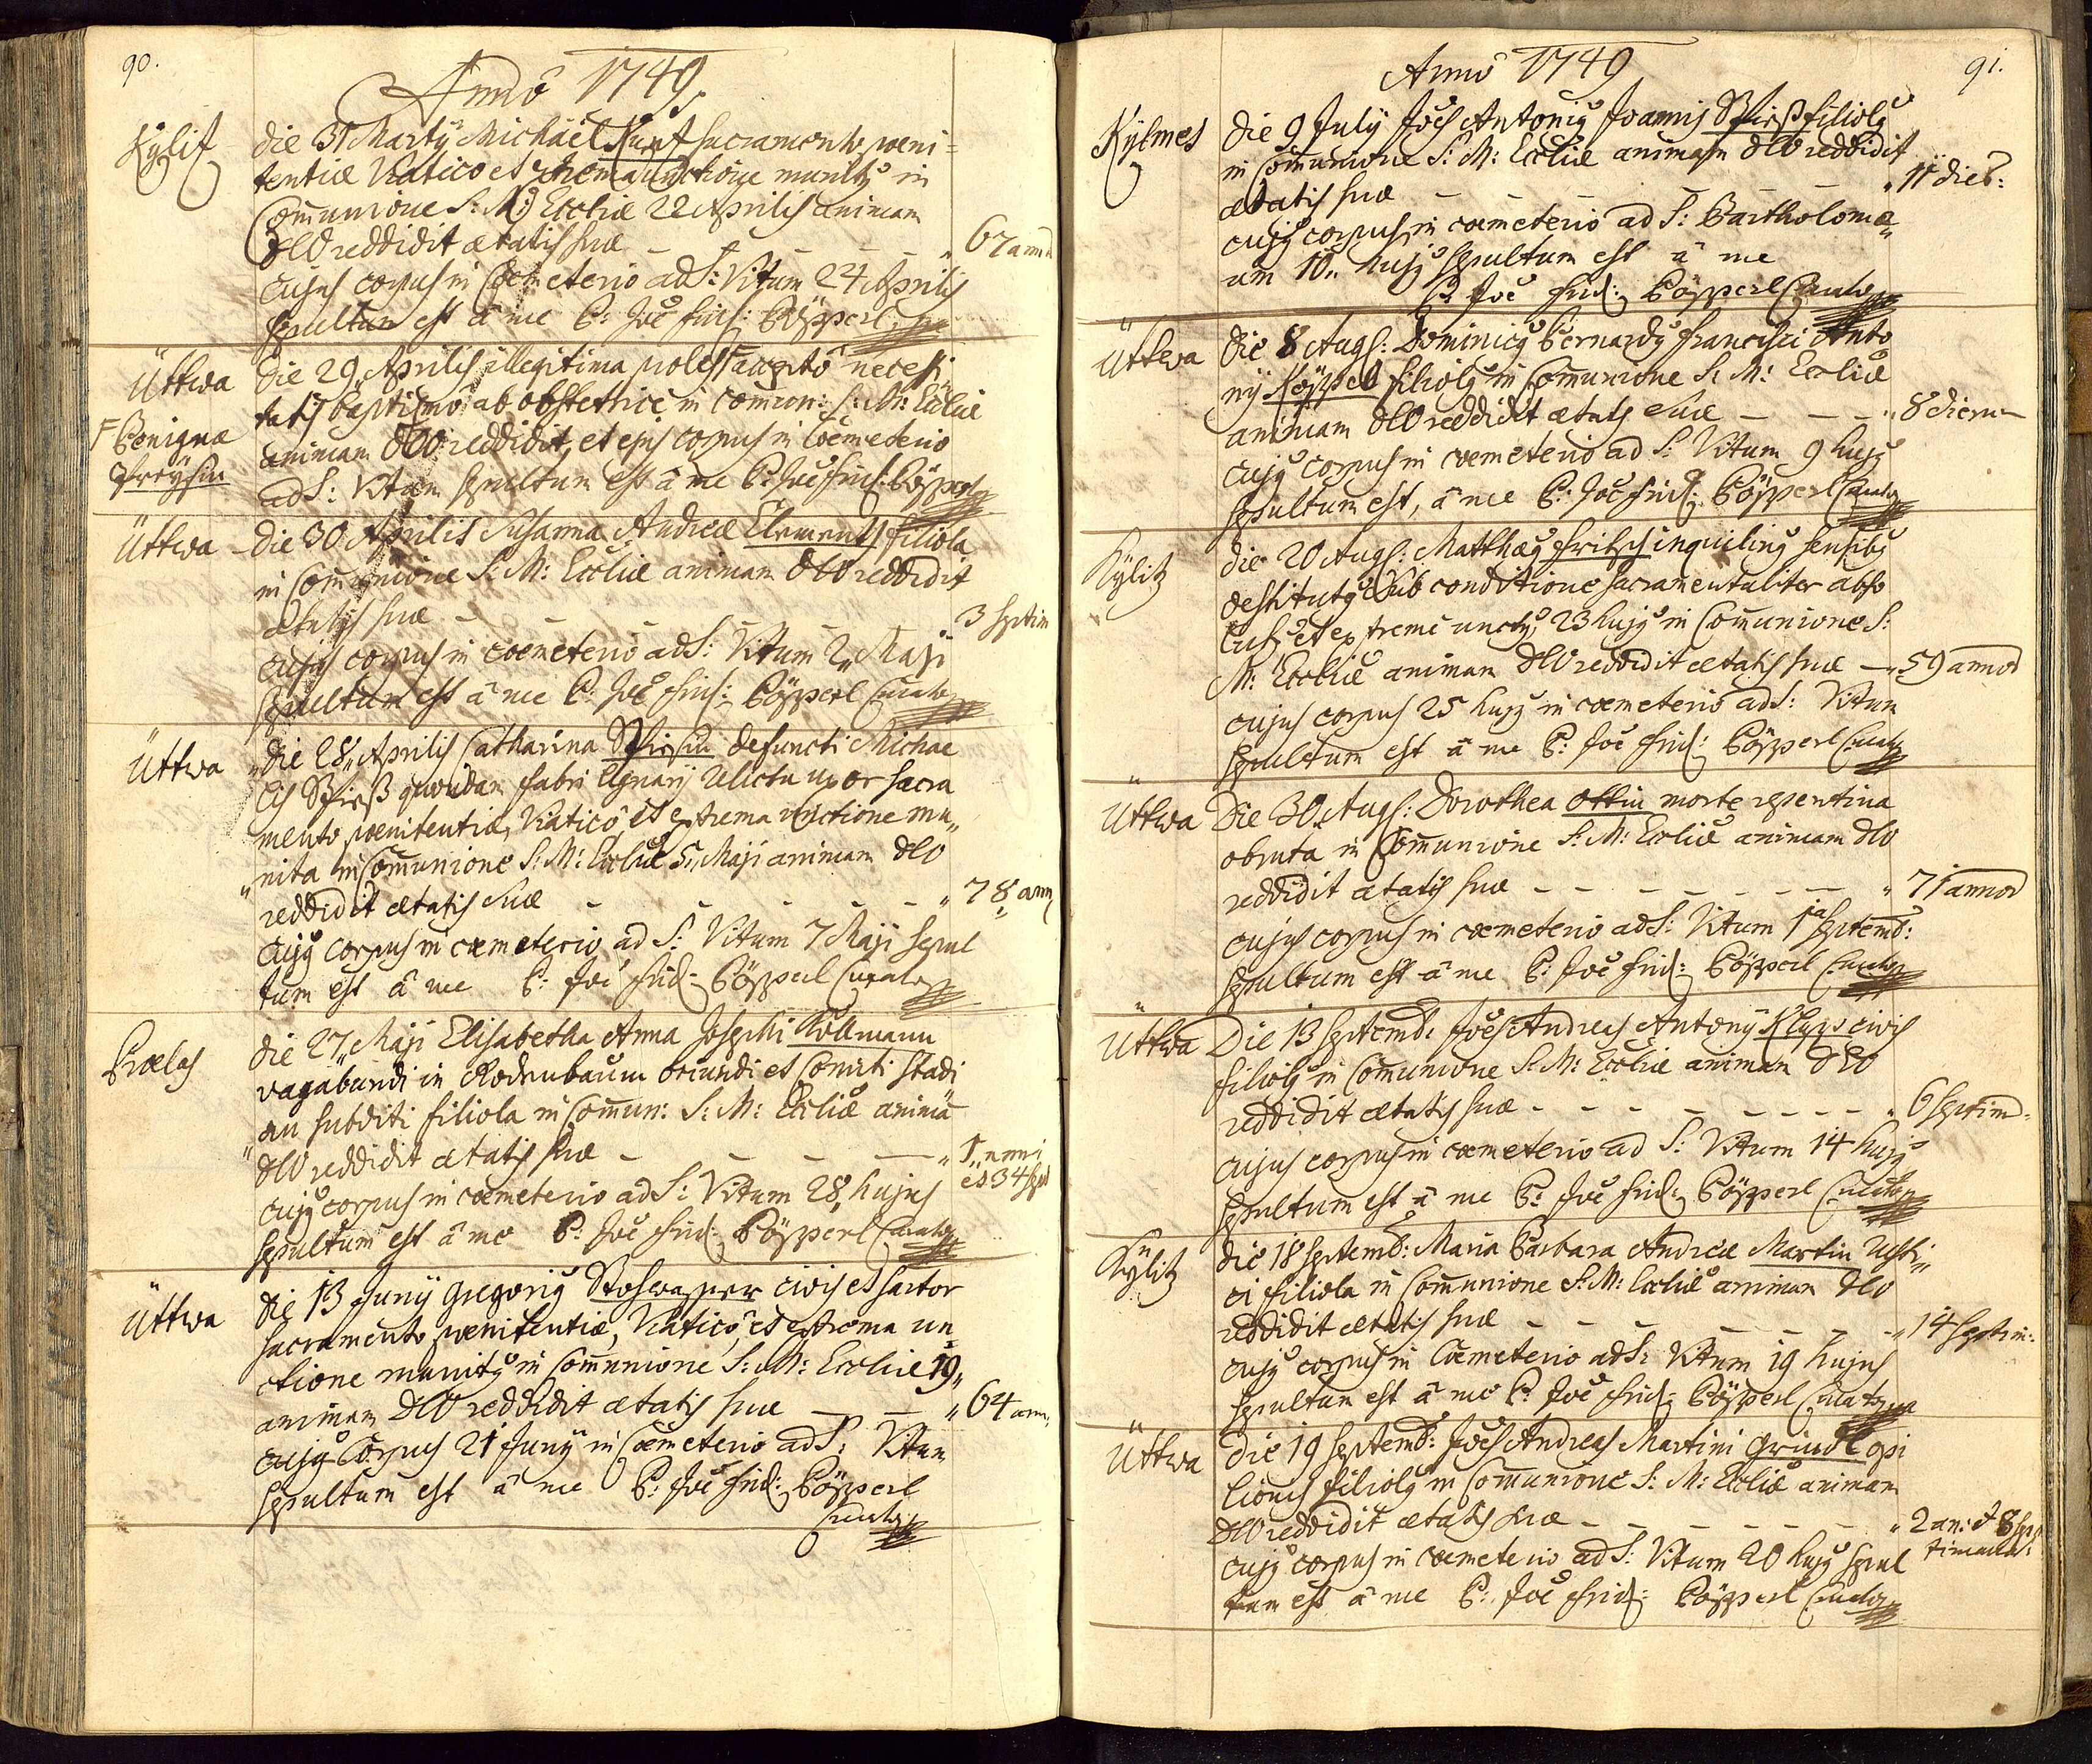 90.
Anno 1749
Kÿlitz
die 31 Martÿ Michäel Kunt sacramento peni=
tentiæ Viatico et extrema unctione munitus in
Communione S: M: Eccliæ 22 Aprilis animam
DEO reddidit ætatis suæ — — — — „ 67 annor
cujus corpus in Coemeterio ad S: Vitum 24 Aprilis
sepultum est â me P: Joe frid: Pöpperl
Üttwa
die 29 Aprilis illegitima proles accepto necessi
tatis baptismo ab obstetrice in commun: S: M: Eccliæ
Benignæ
animam DEO reddidit, et ejus corpus in Coemeterio
ad S: Vitum sepultum est â me P: Joe frid: Pöpperl
Üttwa
die 30 Aprilis Susanna Andreæ Clements filiola
in Communione S: M: Eccliæ animam DEO reddidit
ætatis suæ — — — — 3 septim
cujus corpus in coemeterio ad S: Vitum 2 Maji
sepultum est â me P: Joe frid: Pöpperl Curatus
Üttwa
die 28 Aprilis Catharina defuncti Michae
lis quondam fabri lignarÿ relicta uxor sacra
mento penitentiæ, Viatico, et extrema unctione mu„
„nita in Communione S: M: Eccliæ 5 Maji animam DEO
reddidit ætatis suæ — — — — „ 78 ann
cujus corpus in coemeterio ad S: Vitum 7 Maji sepul
tum est â me P: Joe frid: Pöpperl Curatus
Prælas
die 27 Maji Elisabetha Anna Josephi Kollmann
vagabundi in Rodenbaum oriundi et Comiti Stadi
an subditi filiola in Commun: S: M: Eccliæ animã
„DEO reddidit ætatis suæ — — — „ 1 anni
et 34 sept
cujus corpus in coemeterio ad S: Vitum 28 hujus
sepultum est â me P: Joe frid: Pöpperl Curatus
Üttwa
die 13 Junÿ Gregorius Stohwasser civis et sartor
sacramento penitentiæ, Viatico, et extrema un=
ctione munitus in Communione S: M: Eccliæ 19„
animam DEO reddidit ætatis suæ — — „ 64 ann:
cujus Corpus 21 Junÿ in Coemeterio ad S: Vitum
sepultum est â me P: Joe frid: Pöpperl
Curatus
91.
Anno 1749
Kÿlmes
die 9 Julÿ Joes Antonius Joannis filiolus
in Communione S: M: Eccliæ animam DEO reddidit
ætatis suæ — — — — — „ 11 dies:
cujus corpus in coemeterio ad S: Bartholomæ„
um 10„ hujus sepultum est â me
P: Joe frid: Pöpperl Curatus
Üttwa
die 8 Augs: Dominicus Bernardus Francisci Anto
nÿ Köppel filiolus in Communione S: M: Eccliæ
animam DEO reddidit ætatis Suæ — — — „ 8 dierum
cujus corpus in coemeterio ad S: Vitum 9 hujus
sepultum est, â me P: Joe frid: Pöpperl Curatus
Kÿlitz
die 20 Augs: Matthæus Fritsch inquilinus sensibus
destitutus Sub conditione sacramentaliter abso
lutus, et extremè unctus, 23 hujus in Communione S:
M: Eccliæ animam DEO reddidit ætatis suæ — „ 59 annor
cujus corpus 25 hujus in coemeterio ad S: Vitum
sepultum est â me P: Joe frid: Pöpperl Curatus
Üttwa
Die 30 Augs: Dorothea Ottin morte repentina
obruta in Communione S: M: Eccliæ animam DEO
reddidit ætatis suæ — — — — — — — „ 71 annor
cujus corpus in coemeterio ad S: Vitum 1ª Septemb:
sepultum est â me P: Joe frid: Pöpperl Curatus
Üttwa
Die 13 Septemb: Joes Andreas Antonÿ civis
filiolus in Communione S: M: Eccliæ animam DEO
reddidit ætatis suæ — — — — — — — — „ 6 septim:
cujus corpus in coemeterio ad S: Vitum 14 hujus
sepultum est â me P: Joe frid: Pöpperl Curatus
Kÿlitz
die 18 Septemb: Maria Barbara Andreæ Martin rusti„
ci filiola in Communione S: M: Eccliæ animam DEO
reddidit ætatis suæ — — — — — — — „ 14 septim:
cujus corpus in Coemeterio ad S: Vitum 19 hujus
sepultum est â me P: Joe frid: Pöpperl Curatus
Üttwa
die 19 Septemb: Joes Andreas Martini Grindl opi
lionis filiolus in Communione S: M: Eccliæ animam
DEO reddidit ætatis suæ — — — — — — „ 2 an: et 8 sep
timana:
cujus corpus in coemeterio ad S: Vitum 20 hujus sepul
tum est â me P: Joe frid: Pöpperl Curatus